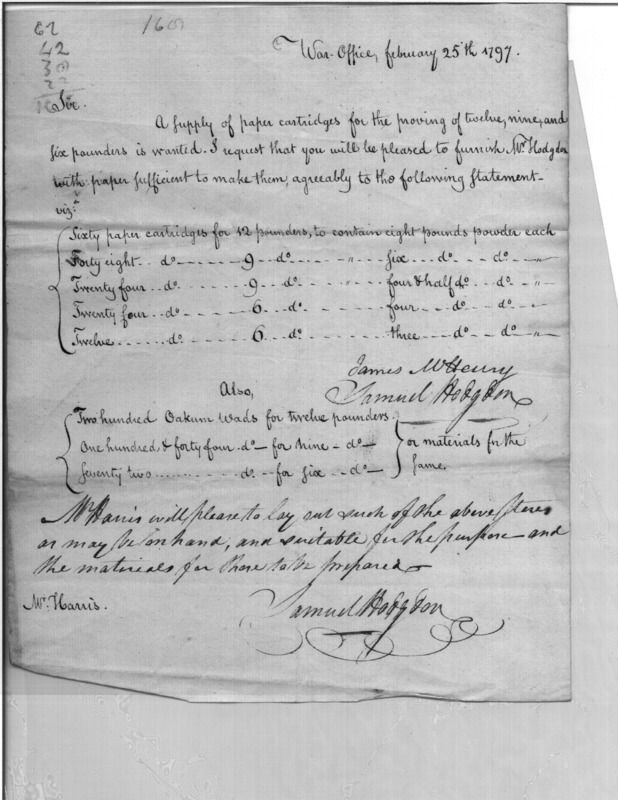 62
42
30
22
160
War-Office, february 25th 1797.
Sir.
A supply of paper cartridges for the proving of twelve, nine, and
six pounders is wanted. I request that you will be pleased to furnish Mr. Hodgdon
with paper sufficient to make them, agreeably to the following Statement-
viz.t
Sixty paper cartridges for 12 pounders, to contain eight pounds powder each
Forty eight.. do ------ 9 -- do -- " -- six ... do -- do -- "
Twenty four .. do ------ 9 -- do -- " -- four & half do. -- do -- "
Twenty four .. do ------ 6 -- do -- -- four ... do -- do -- "
Twelve ...... do ------ 6 -- do -- -- three ... do -- do -- "
James McHenry
Samuel Hodgdon
Also,
Two hundred Oakum Wads for twelve pounders.
One hundred & forty four. do - for Nine - do -
Seventy two ......... do - for Six .. do -
or materials for the
same.
Mr Harris will please to lay out such of the above Stores
as may be on hand, and suitable for the purpose - and
the materials for those to be prepared -
Mr. Harris.
Samuel Hodgdon